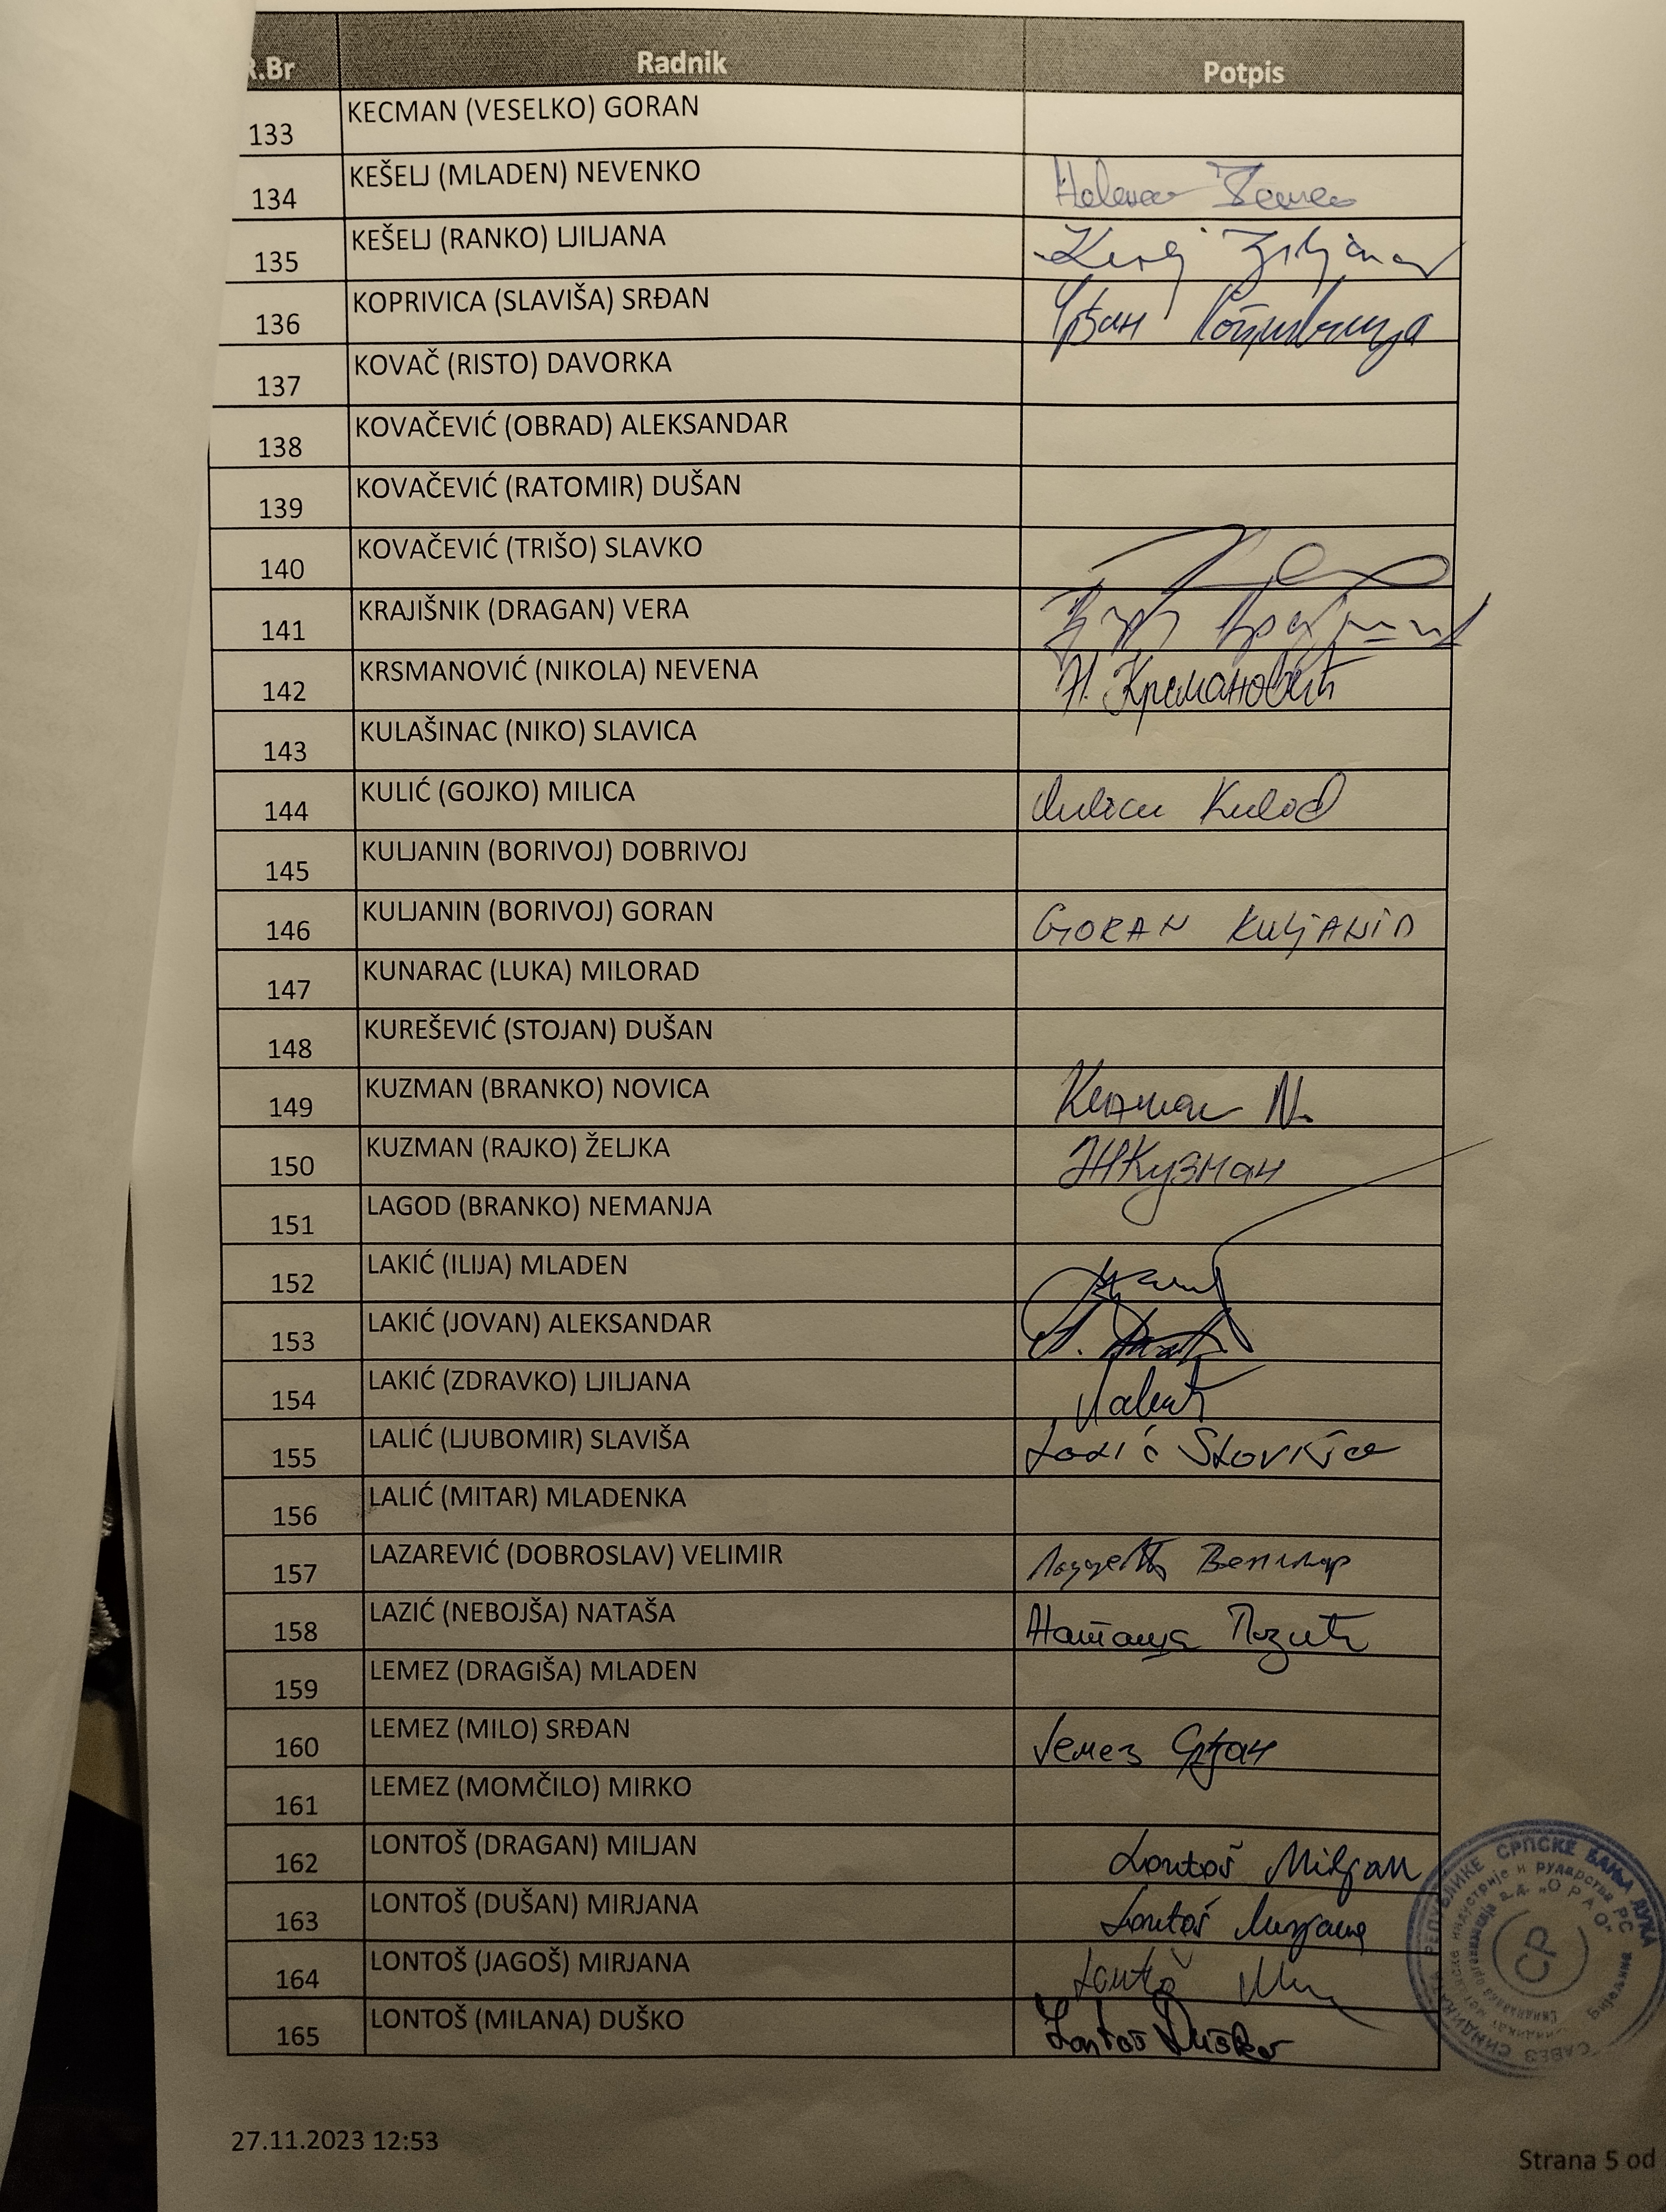 R.Br Radnik Potpis
133 KECMAN (VESELKO) GORAN
134 KEŠELJ (MLADEN) NEVENKO
135 KEŠELJ (RANKO) LJILJANA
136 KOPRIVICA (SLAVIŠA) SRĐAN Срђан Копривица
137 KOVAČ (RISTO) DAVORKA
138 KOVAČEVIĆ (OBRAD) ALEKSANDAR
139 KOVAČEVIĆ (RATOMIR) DUŠAN
140 KOVAČEVIĆ (TRIŠO) SLAVKO
141 KRAJIŠNIK (DRAGAN) VERA
142 KRSMANOVIĆ (NIKOLA) NEVENA Н. Крсмановић
143 KULAŠINAC (NIKO) SLAVICA
144 KULIĆ (GOJKO) MILICA
145 KULJANIN (BORIVOJ) DOBRIVOJ
146 KULJANIN (BORIVOJ) GORAN GORAN KULJANIN
147 KUNARAC (LUKA) MILORAD
148 KUREŠEVIĆ (STOJAN) DUŠAN
149 KUZMAN (BRANKO) NOVICA
150 KUZMAN (RAJKO) ŽELJKA ЖКузман
151 LAGOD (BRANKO) NEMANJA
152 LAKIĆ (ILIJA) MLADEN
153 LAKIĆ (JOVAN) ALEKSANDAR
154 LAKIĆ (ZDRAVKO) LJILJANA
155 LALIĆ (LJUBOMIR) SLAVIŠA Lalić Slaviša
156 LALIĆ (MITAR) MLADENKA
157 LAZAREVIĆ (DOBROSLAV) VELIMIR Велимир
158 LAZIĆ (NEBOJŠA) NATAŠA Наташа Лазић
159 LEMEZ (DRAGIŠA) MLADEN
160 LEMEZ (MILO) SRĐAN Лемез Срђан
161 LEMEZ (MOMČILO) MIRKO
162 LONTOŠ (DRAGAN) MILJAN Lontoš Miljan
163 LONTOŠ (DUŠAN) MIRJANA Lontoš Мирјана
164 LONTOŠ (JAGOŠ) MIRJANA Lontoš
165 LONTOŠ (MILANA) DUŠKO Lontoš Duško
РЕПУБЛИКЕ СРПСКЕ БАЊА ЛУКА
САВЕЗ СИНДИКАТА
индустрије и рударства РС
а.д. „ОРАО"
СР
27.11.2023 12:53
Strana 5 od